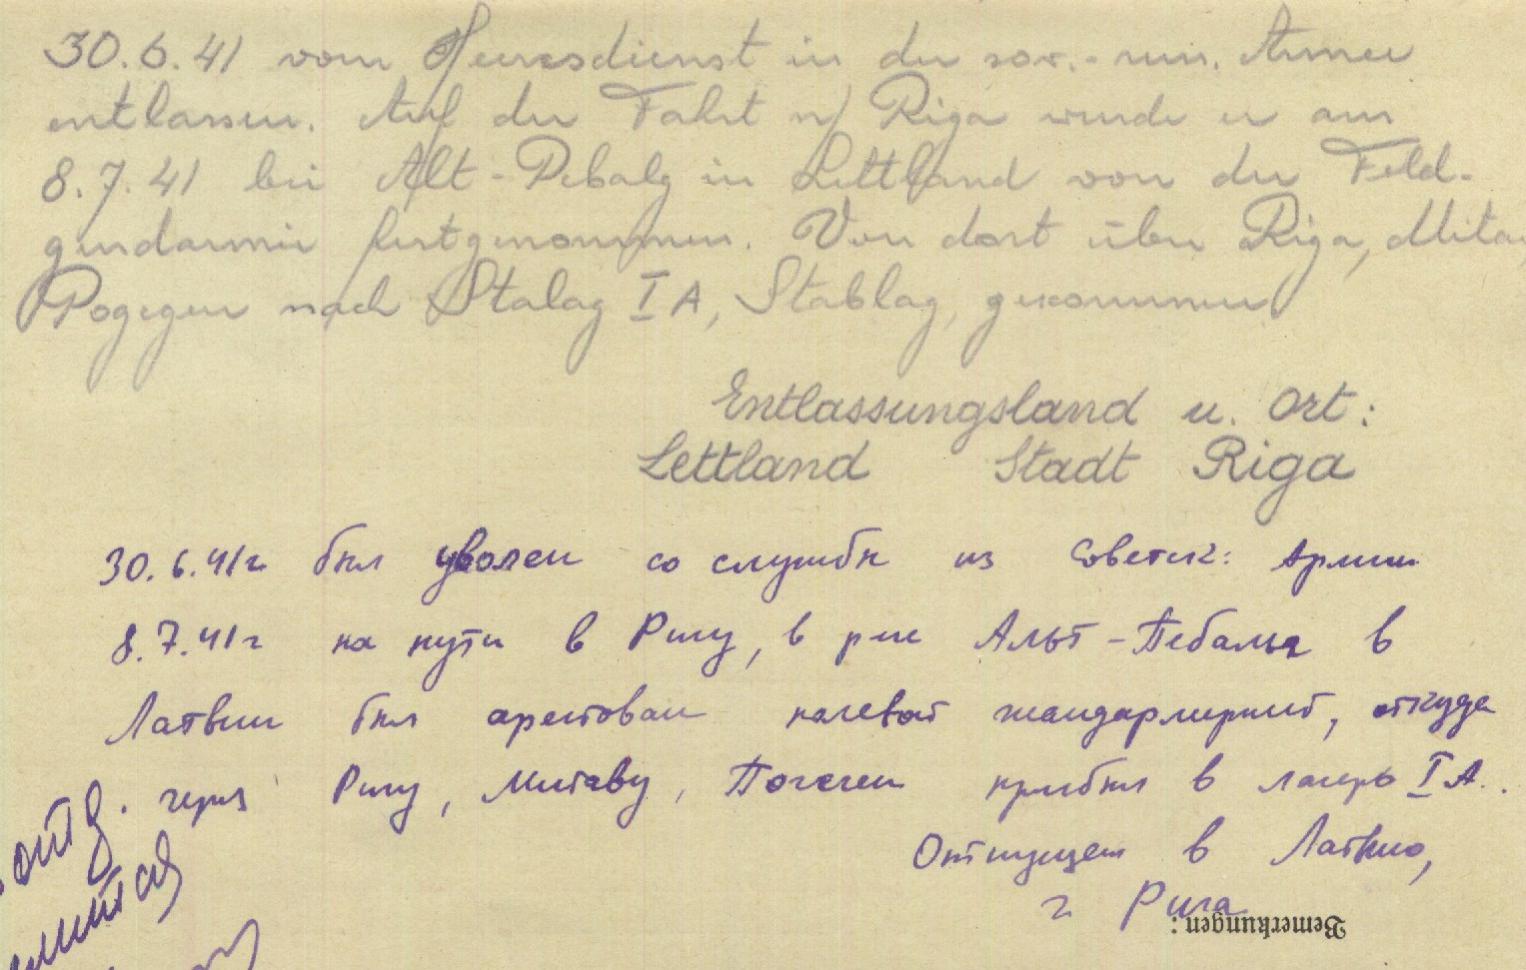 30.6.41 vom Heeresdienst in der sow.-russ. Armee
entlassen. Auf der Fahrt n/ Riga wurde er am
8.7.41 bei Alt-Pebalg in Lettland von der Feld-
gendarmerie festgenommen. Von dort über Riga, Mitau,
Pogegen nach Stalag I A, Stablag, gekommen
Entlassungsland u. Ort:
Lettland Stadt Riga
30.6.41г был уволен со службы из Советск: Армии
8.7.41г на пути в Ригу, в рне Альт-Пебальг в
Латвии был арестован полевой жандармерией, откуда
через Ригу, Митаву, Погеген прибыл в лагерь I А.
Отпущен в Латвию,
г Рига
Bemerkungen: